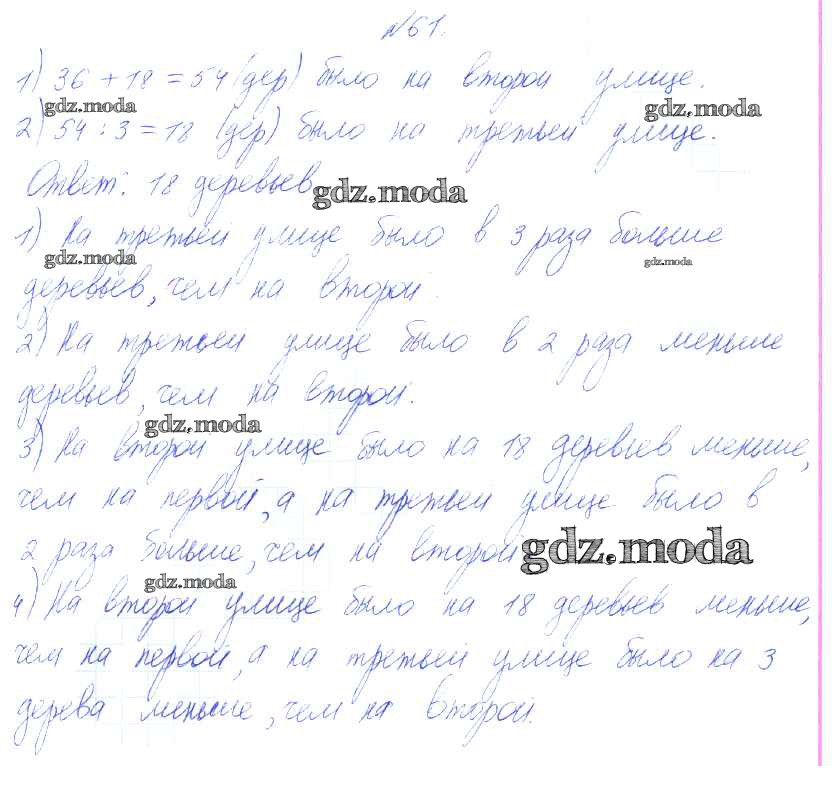 №61.
1) 36 + 18 = 54 (дер) было на второй улице.
gdz.moda gdz.moda
2) 54 : 3 = 18 (дер) было на третьей улице.
Ответ: 18 деревьев
gdz.moda
1) На третьей улице было в 3 раза больше
gdz.moda gdz.moda
деревьев, чем на второй.
2) На третьей улице было в 2 раза меньше
деревьев, чем на второй.
gdz.moda
3) На второй улице было на 18 деревьев меньше,
чем на первой, а на третьей улице было в
2 раза больше, чем на второй
gdz.moda
gdz.moda
4) На второй улице было на 18 деревьев меньше,
чем на первой, а на третьей улице было на 3
дерева меньше, чем на второй.